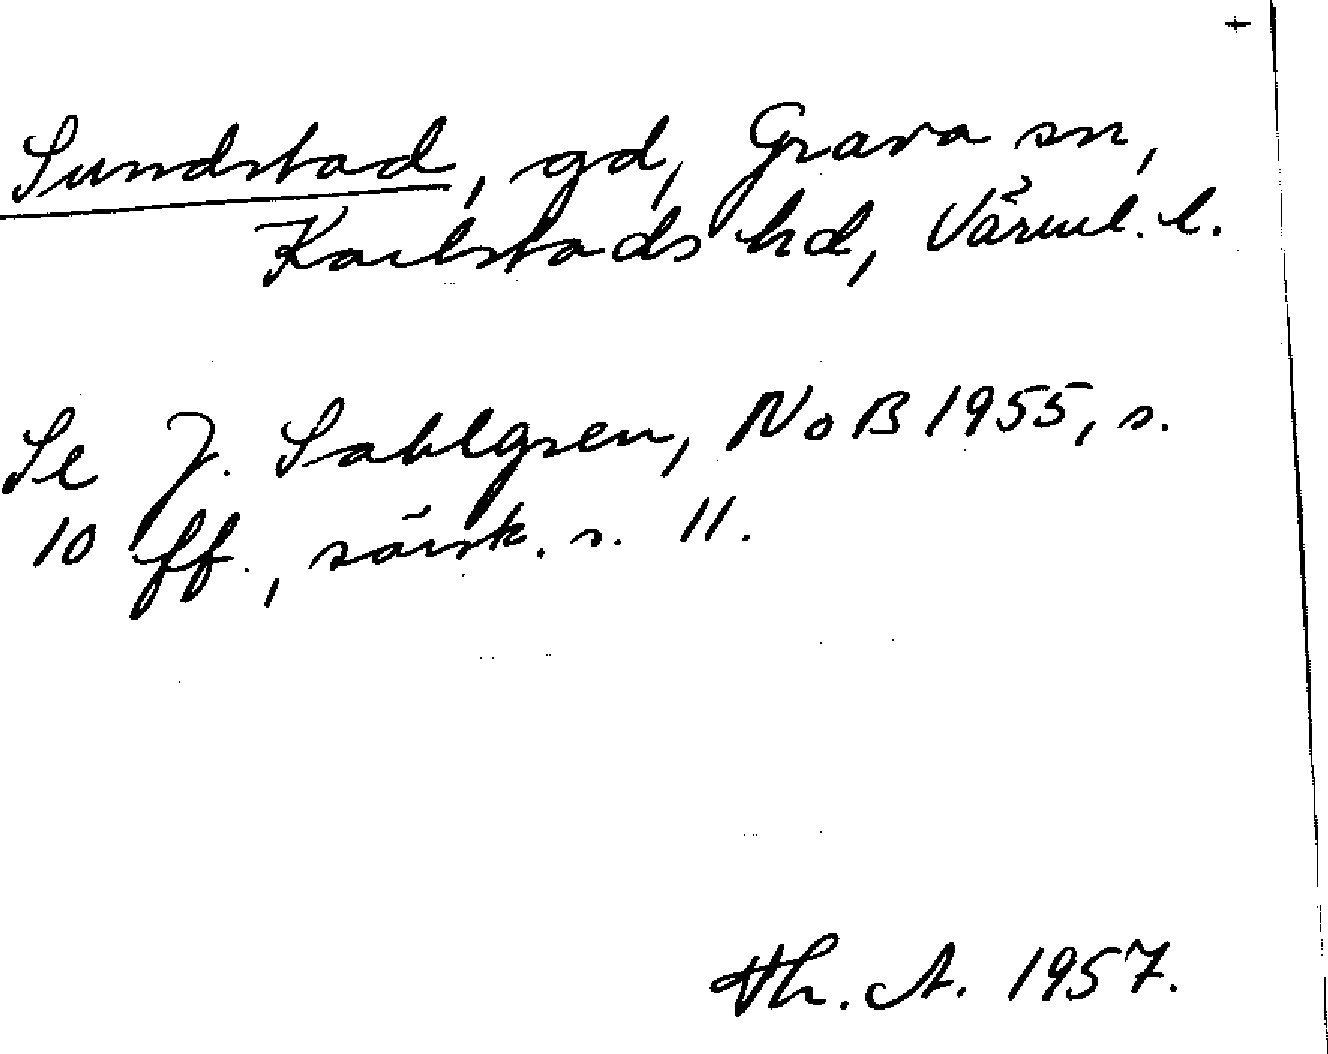 Sundstad, gd, Grava sn,
Karlstads hd, Värml. l.
Se J. Sahlgren, NoB 1955, s.
10 ff., särsk. s. 11.
Th. A. 1957.